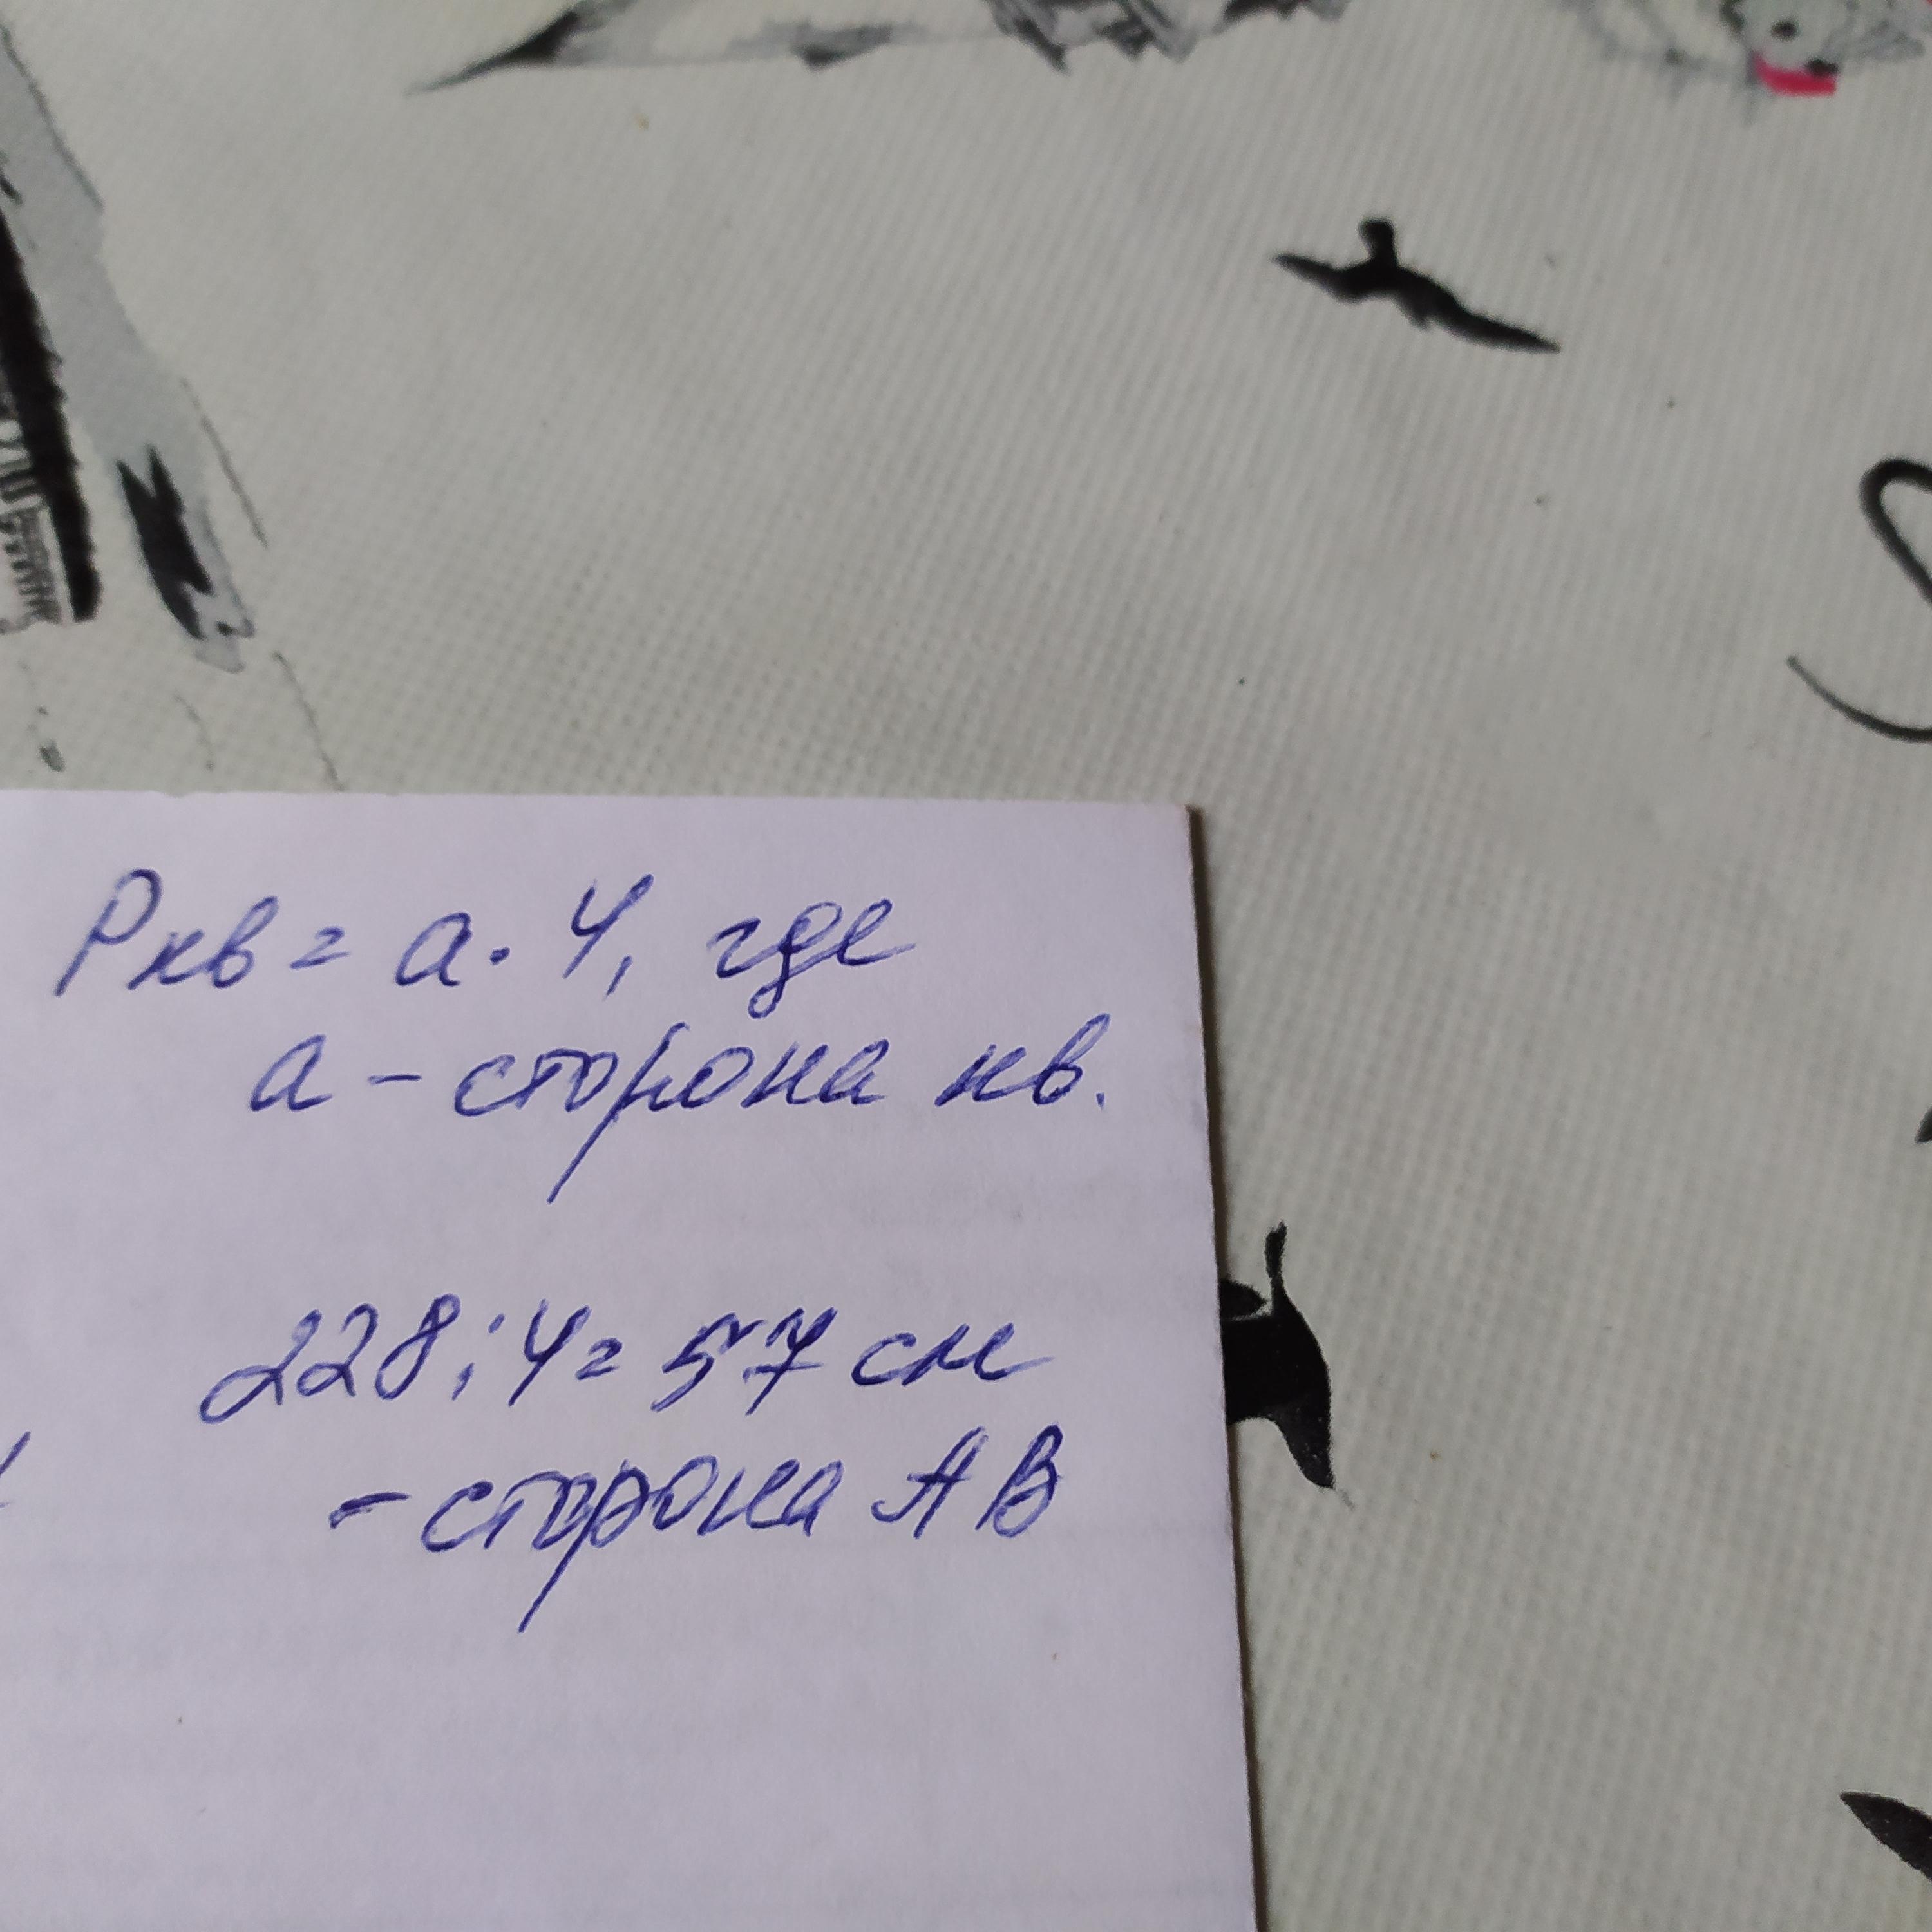 Pкв = a · 4, где
a – сторона кв.
228 : 4 = 57 см
– сторона AB